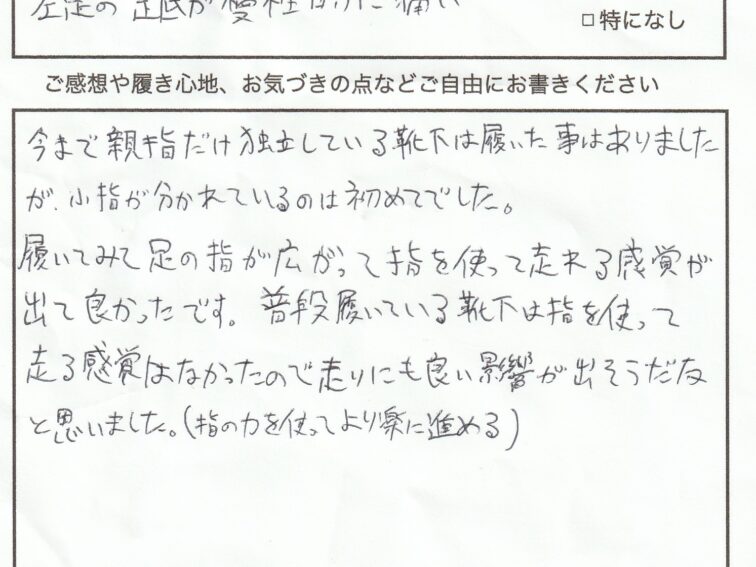 左足の足底が慢性的に痛い
□特になし
ご感想や履き心地、お気づきの点などご自由にお書きください
今まで親指だけ独立している靴下は履いた事はありました
が、小指が分かれているのは初めてでした。
履いてみて足の指が広がって指を使って走れる感覚が
出て良かったです。普段履いている靴下は指を使って
走る感覚はなかったので走りにも良い影響が出そうだな
と思いました。(指の力を使ってより楽に進める)